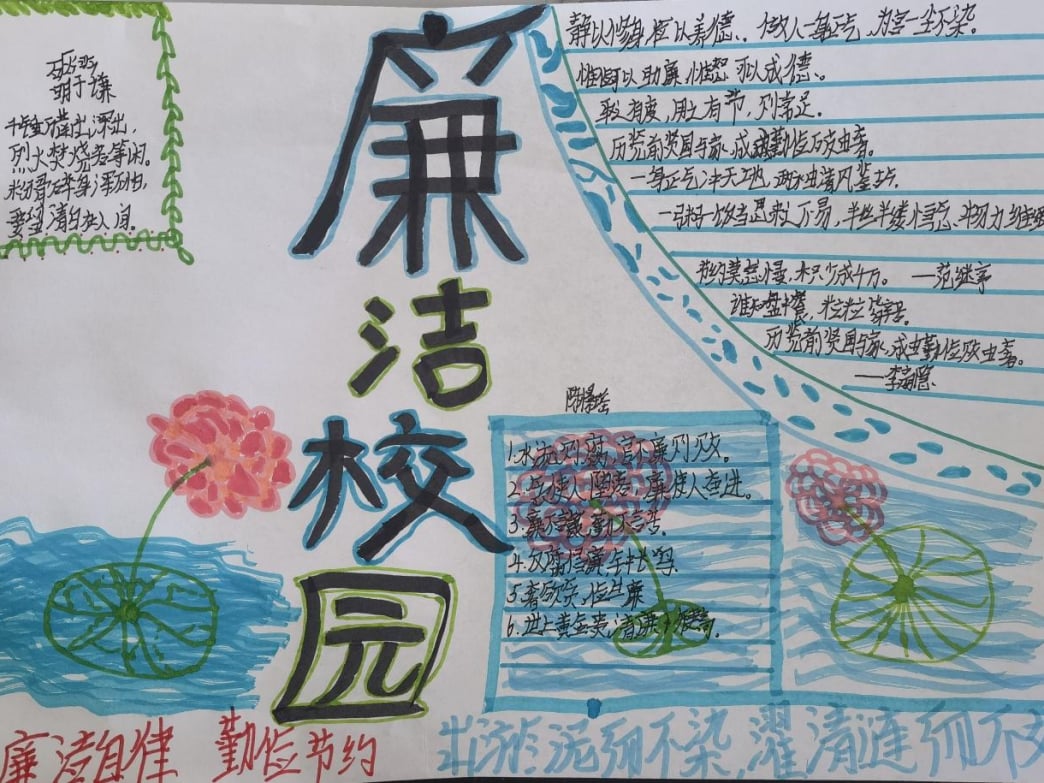 石灰吟
明于谦
千锤万凿出深山,
烈火焚烧若等闲。
粉骨碎身浑不怕,
要留清白在人间。
廉
洁
校
园
静以修身,俭以养德、做人一身正气,为官一尘不染。
惟俭可以助廉,惟恕可以成德、。
取之有度,用之有节,则常足。
历览前贤国与家,成由勤俭破由奢。
一身正气冲天地,两袖清风
当思来之不易,半丝半缕恒念物力维艰
节约莫怠慢,积少成千万。 —范继亭
谁知盘中餐,粒粒皆辛苦。
历览前贤国与家,成由勤俭败由奢。
—李商隐
1.水流则腐,官不廉则败。
2.使人堕落,廉使人奋进。
3.
4.反腐倡廉,
5.奢欲贪,俭生廉
6.世上黄金贵,清廉
廉洁自律 勤俭节约
出淤泥而不染,濯清涟而不